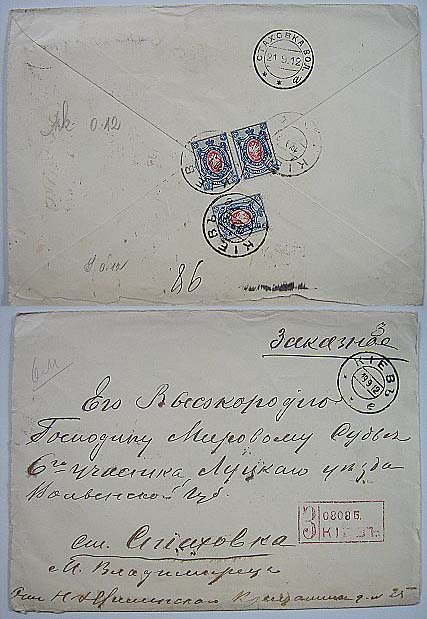 СТАХОВКА ВОЛ.
21.9.12
0.12
КІЕВЪ
КІЕВЪ
86
Заказное
КІЕВЪ
9 12
Его Высокородію
Господину Мировому Судьѣ
6го участка, Луцкаго уѣзда
Волынской Губ.
З 08085.
КІЕВЪ.
ст. Стаховка
М. Владимирецъ
25